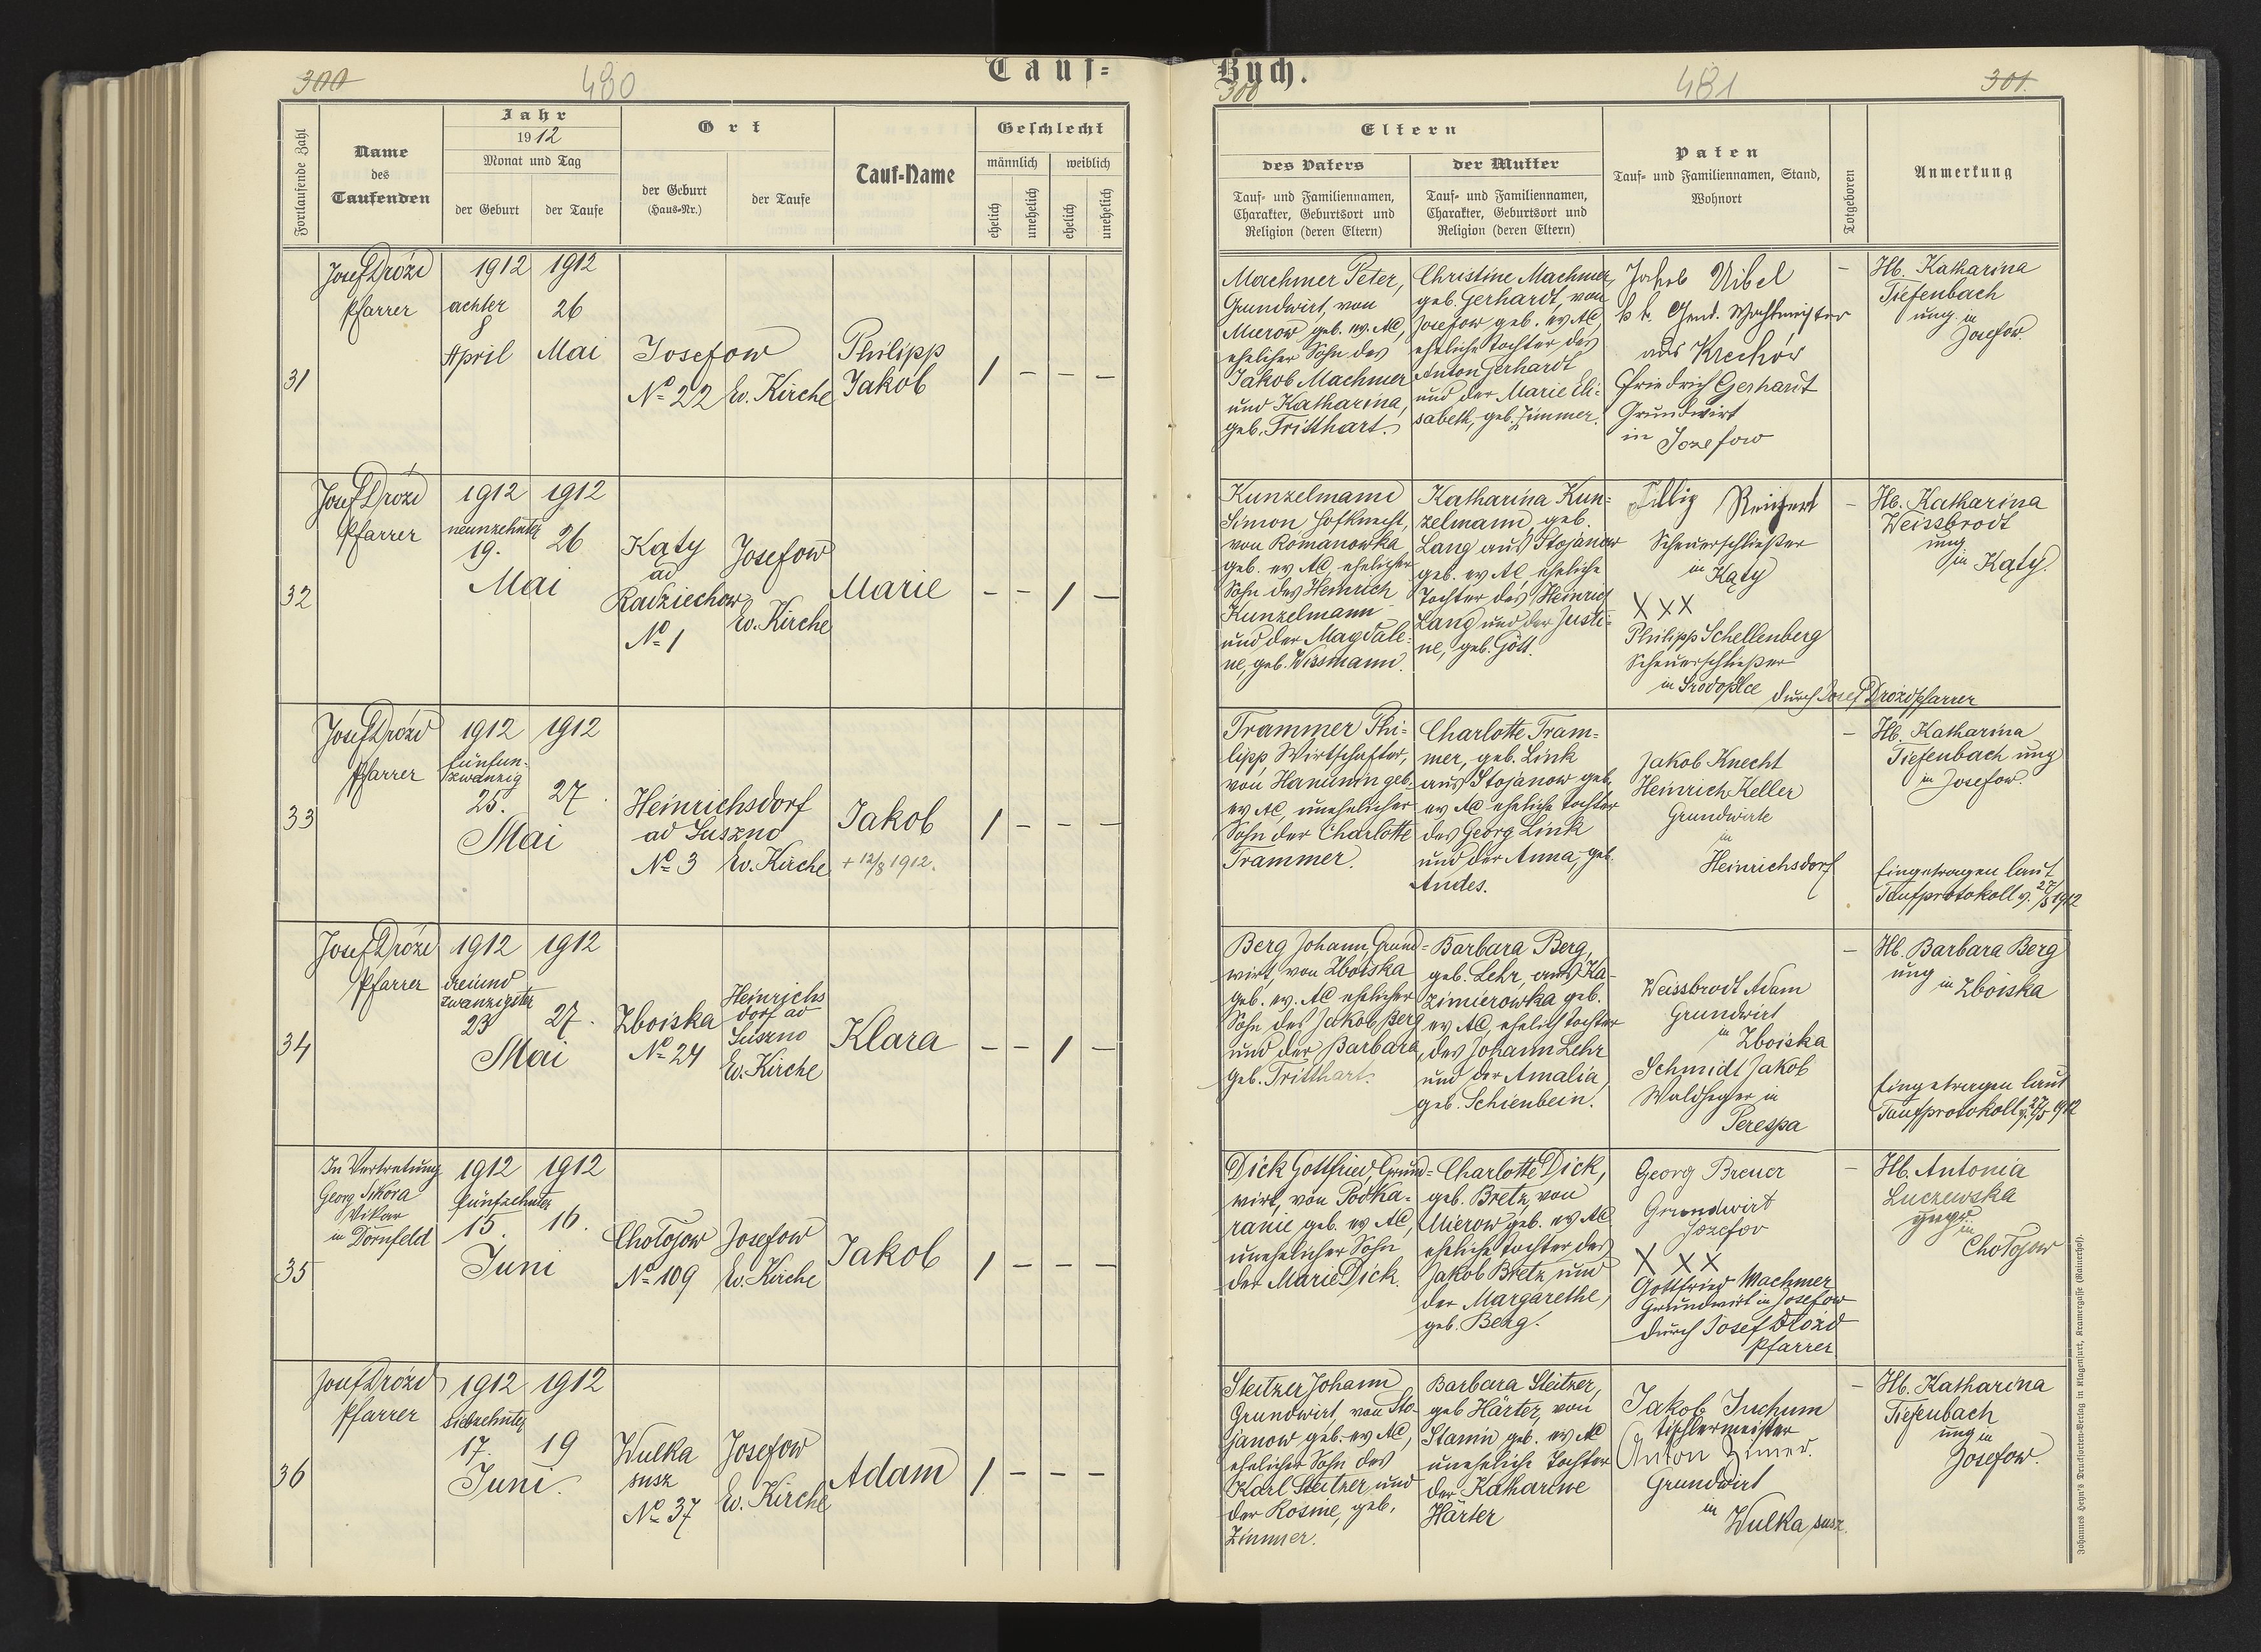 300
490
Tauf=
Fortlaufende Zahl
Name
des
Taufenden
Jahr
1912
Monat und Tag
der Geburt
der Taufe
Ort
der Geburt
(Haus-Nr.)
der Taufe
Tauf-Name
Geschlecht
männlich
weiblich
ehelich
unehelich
ehelich
unehelich
31
Josef Drózd
Pfarrer
1912
achter
8
April
1912
26
Mai
Josefow
№ 22
Ev. Kirche
Philipp
Jakob
/ – – –
32
Josef Drózd
Pfarrer
1912
neunzehnter
19.
1912
26
Mai
Kąty
ad
Radziechow
№ 1
Josefow
Ev. Kirche
Marie
– – / –
33
Josef Drózd
Pfarrer
1912
fünfun-
zwanzig
25.
1912
27.
Mai
Heinrichsdorf
ad Suszno
№ 3
Ev. Kirche
Jakob
+ 12/8 1912.
/ – – –
34
Josef Drózd
Pfarrer
1912
dreiund
zwanzigster
23
1912
27.
Mai
Zboiska
№ 24
Heinrichs
dorf ad
Suszno
Ev. Kirche
Klara
– – / –
35
In Vertretung
Georg Sikora
Vikar
in Dornfeld
1912
fünfzehnter
15.
1912
16.
Juni
Chołojow
№ 109
Josefow
Ev. Kirche
Jakob
/ – – –
36
Josef Drózd
Pfarrer
1912
siebzehnter
17.
1912
19
Juni.
Wulka
susz
№ 37
Josefow
Ev. Kirche
Adam
/ – – –
Buch.
300
481
301.
Eltern
des Vaters
Tauf- und Familiennamen,
Charakter, Geburtsort und
Religion (deren Eltern)
der Mutter
Tauf- und Familiennamen,
Charakter, Geburtsort und
Religion (deren Eltern)
Paten
Tauf- und Familiennamen, Stand,
Wohnort
Totgeboren
Anmerkung
Machmer Peter,
Grundwirt, von
Mierow geb. ev. AC,
ehelicher Sohn des
Jakob Machmer
und Katharina,
geb. Tritthart.
Christine Machmer,
geb. Gerhardt, von
Josefow geb. ev AC,
eheliche Tochter des
Anton Gerhardt
und der Marie Eli-
sabeth, geb. Zimmer.
Jakob Uibel
k. k. Gend. Wachtmeister
aus Krechów
Friedrich Gerhardt
Grundwirt
in Jozefow
–
Hb. Katharina
Tiefenbach
ung. in
Josefow.
Kunzelmann
Simon Hofknecht,
von Romanowka
geb. ev AC ehelicher
Sohn des Heinrich
Kunzelmann
und der Magdale-
ne, geb. Wissmann.
Katharina Kun-
zelmann, geb.
Lang aus Stojanow
geb. ev AC, eheliche
Tochter des Heinrich
Lang und der Justi-
ne, geb. Gött.
Scheuerschließer
in Kąty
X X X
Philipp Schellenberg
Scheuerschließer
in Srodopolce durch Josef Drózd Pfarrer
–
Hb. Katharina
Weissbrodt
ung
in Kąty.
Trammer Phi-
lipp Wirtschafter,
von Hanunin geb.
ev AC, unehelicher
Sohn der Charlotte
Trammer.
Charlotte Tram-
mer, geb. Link
aus Stojanow geb.
ev AC eheliche Tochter
des Georg Link
und der Anna, geb.
Andes.
Jakob Knecht
Heinrich Keller
Grundwirte
in
Heinrichsdorf
–
Hb. Katharina
Tiefenbach ung
in Josefow.
Eingetragen laut
Taufprotokoll v. 27/5 1912
Berg Johann, Grund-
wirt, von Zboiska
geb. ev. AC ehelicher
Sohn des Jakob Berg
und der Barbara,
geb. Tritthart.
Barbara Berg,
geb. Lehr, aus Ka-
zimierowka geb.
ev AC, ehelich Tochter
des Johann Lehr
und der Amalia,
geb. Schienbein.
Weissbrodt Adam
Grundwirt
in Zboiska
Schmidt Jakob
Waldheger in
Perespa
–
Hb. Barbara Berg
ung in Zboiska
Eingetragen laut
Taufprotokoll v. 27/5 1912
Dick Gottfried, Grund-
wirt, von Podka-
ranie geb. ev AC,
unehelicher Sohn
der Marie Dick.
Charlotte Dick,
geb. Bretz, von
Mierow geb. ev AC
eheliche Tochter des
Jakob Bretz und
der Margarethe,
geb. Berg.
Georg Breuer
Grundwirt
Jozefov
X X X
Gottfried Machmer
Grundwirt in Josefow
durch Josef Drózd
Pfarrer
–
Hb. Antonia
Luczewska
in
Chołojow
Steitzer Johann
Grundwirt von Sto-
janow geb. ev AC,
ehelicher Sohn des
Karl Steitzer und
der Rosine, geb.
Zimmer.
Barbara Steitzer,
geb Härter, von
Stanin geb. ev AC
uneheliche Tochter
der Katharine
Härter
Jakob Juchum
Tischlermeister
Anton Zimer.
Grundwirt
in
Wulka susz.
–
Hb. Katharina
Tiefenbach
ung in
Josefow.
Johannes Heyn's Drucksorten-Verlag in Klagenfurt, Kramergasse (Rainerhof).